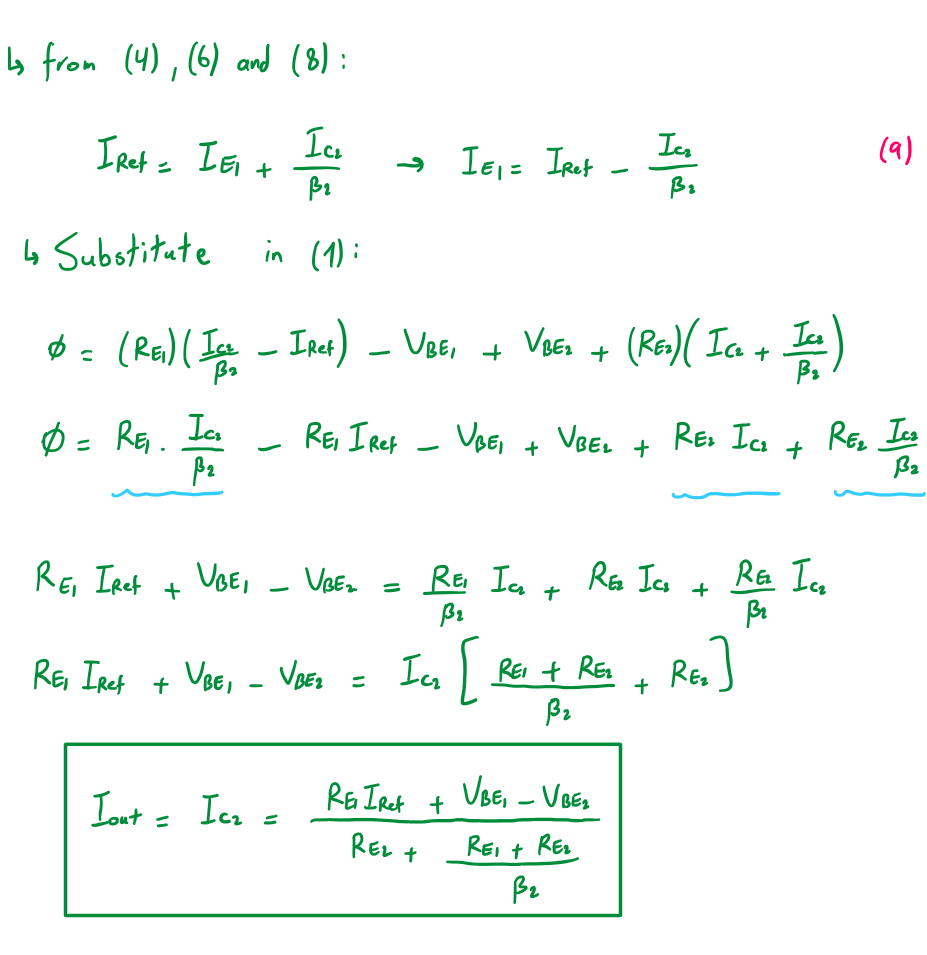 ↳ from (4), (6) and (8):
I_Ref = I_E1 + I_C2/β2 → I_E1 = I_Ref - I_C2/β2 (9)
↳ Substitute in (1):
∅ = (R_E1)(I_C2/β2 - I_Ref) - V_BE1 + V_BE2 + (R_E2)(I_C2 + I_C2/β2)
∅ = R_E1 · I_C2/β2 - R_E1 I_Ref - V_BE1 + V_BE2 + R_E2 I_C2 + R_E2 I_C2/β2
R_E1 I_Ref + V_BE1 - V_BE2 = R_E1/β2 I_C2 + R_E2 I_C2 + R_E2/β2 I_C2
R_E1 I_Ref + V_BE1 - V_BE2 = I_C2 [(R_E1 + R_E2)/β2 + R_E2]
I_out = I_C2 = (R_E1 I_Ref + V_BE1 - V_BE2)/(R_E2 + (R_E1 + R_E2)/β2)